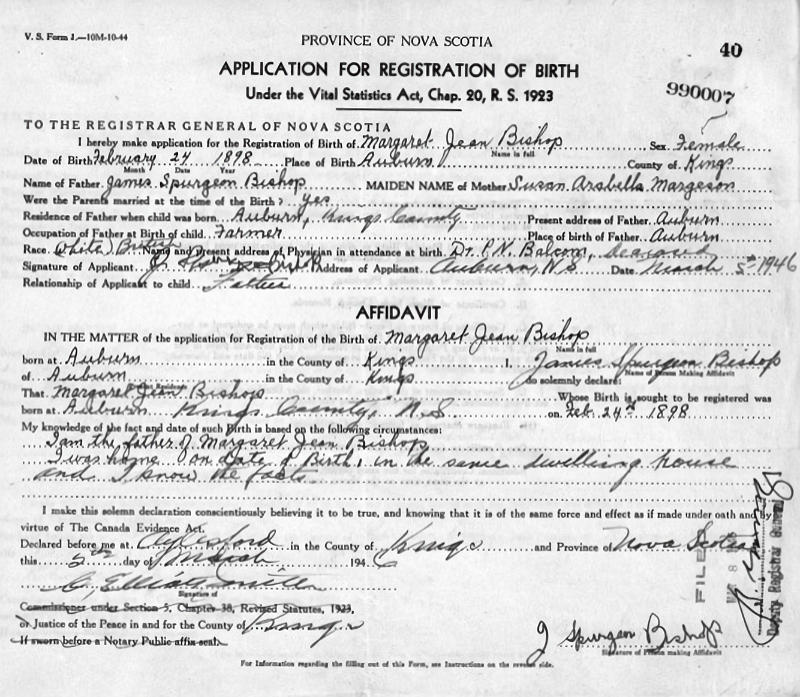 V. S. Form 1.—10M-10-44
PROVINCE OF NOVA SCOTIA
40
APPLICATION FOR REGISTRATION OF BIRTH
990007
Under the Vital Statistics Act, Chap. 20, R. S. 1923
TO THE REGISTRAR GENERAL OF NOVA SCOTIA
I hereby make application for the Registration of Birth of Margaret Jean Bishop Sex Female
Name in full
Date of Birth February 24 1898 Place of Birth Auburn County of Kings
Month Date Year
Name of Father James Spurgeon Bishop MAIDEN NAME of Mother Susan Arabella Margeson
Were the Parents married at the time of the Birth? yes
Residence of Father when child was born Auburn, Kings County Present address of Father Auburn
Occupation of Father at Birth of child Farmer Place of birth of Father Auburn
Race (White) British Name and Present address of Physician in attendance at birth Dr. P.N. Balcom, deceased
Signature of Applicant Address of Applicant Auburn, N.S. Date March 5th 1946
Relationship of Applicant to child Father
AFFIDAVIT
IN THE MATTER of the application for Registration of the Birth of Margaret Jean Bishop
Name in full
born at Auburn in the County of Kings I, James Spurgeon Bishop
Name of Person Making Affidavit
of Auburn in the County of Kings do solemnly declare:
That Margaret Jean Bishop Whose Birth is sought to be registered was
born at Auburn Kings County, N.S. on Feb. 24th 1898
My knowledge of the fact and date of such Birth is based on the following circumstances:
I am the father of Margaret Jean Bishop
I was home on date of Birth, in the same dwelling house
and I know the facts.
I make this solemn declaration conscientiously believing it to be true, and knowing that it is of the same force and effect as if made under oath and by
virtue of The Canada Evidence Act.
Declared before me at Aylesford in the County of Kings and Province of Nova Scotia
this 5th day of March 1946
Signature of
Commissioner under Section 5, Chapter 38, Revised Statutes, 1923,
or Justice of the Peace in and for the County of Kings
If sworn before a Notary Public affix seal
J Spurgeon Bishop
Signature of Person making Affidavit
For Information regarding the filling out of this Form, see Instructions on the reverse side.
FILED
Deputy Registrar General